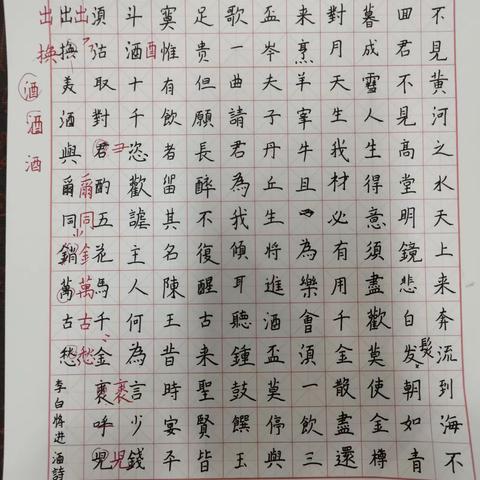 不見黃河之水天上来奔流到海不
回君不見高堂明鏡悲白发髮朝如青
暮成雪人生得意須盡歡莫使金樽
對月天生我材必有用千金散盡還
来烹羊宰牛且為樂會須一飲三
盃岑夫子丹丘生將進酒盃莫停與
歌一曲請君為我傾耳聽鐘鼓饌玉
足贵但願長醉不復醒古来聖賢皆
寞惟有飲者留其名陳王昔時宴平
斗酒十千恣歡謔主人何為言少錢
酉
須沽取對君酌五花馬千金裘呼兒
裘兒
出
爾同金萬古愁
出換美酒與爾同銷萬古愁
李白將进酒詩
出換
酒酒酒